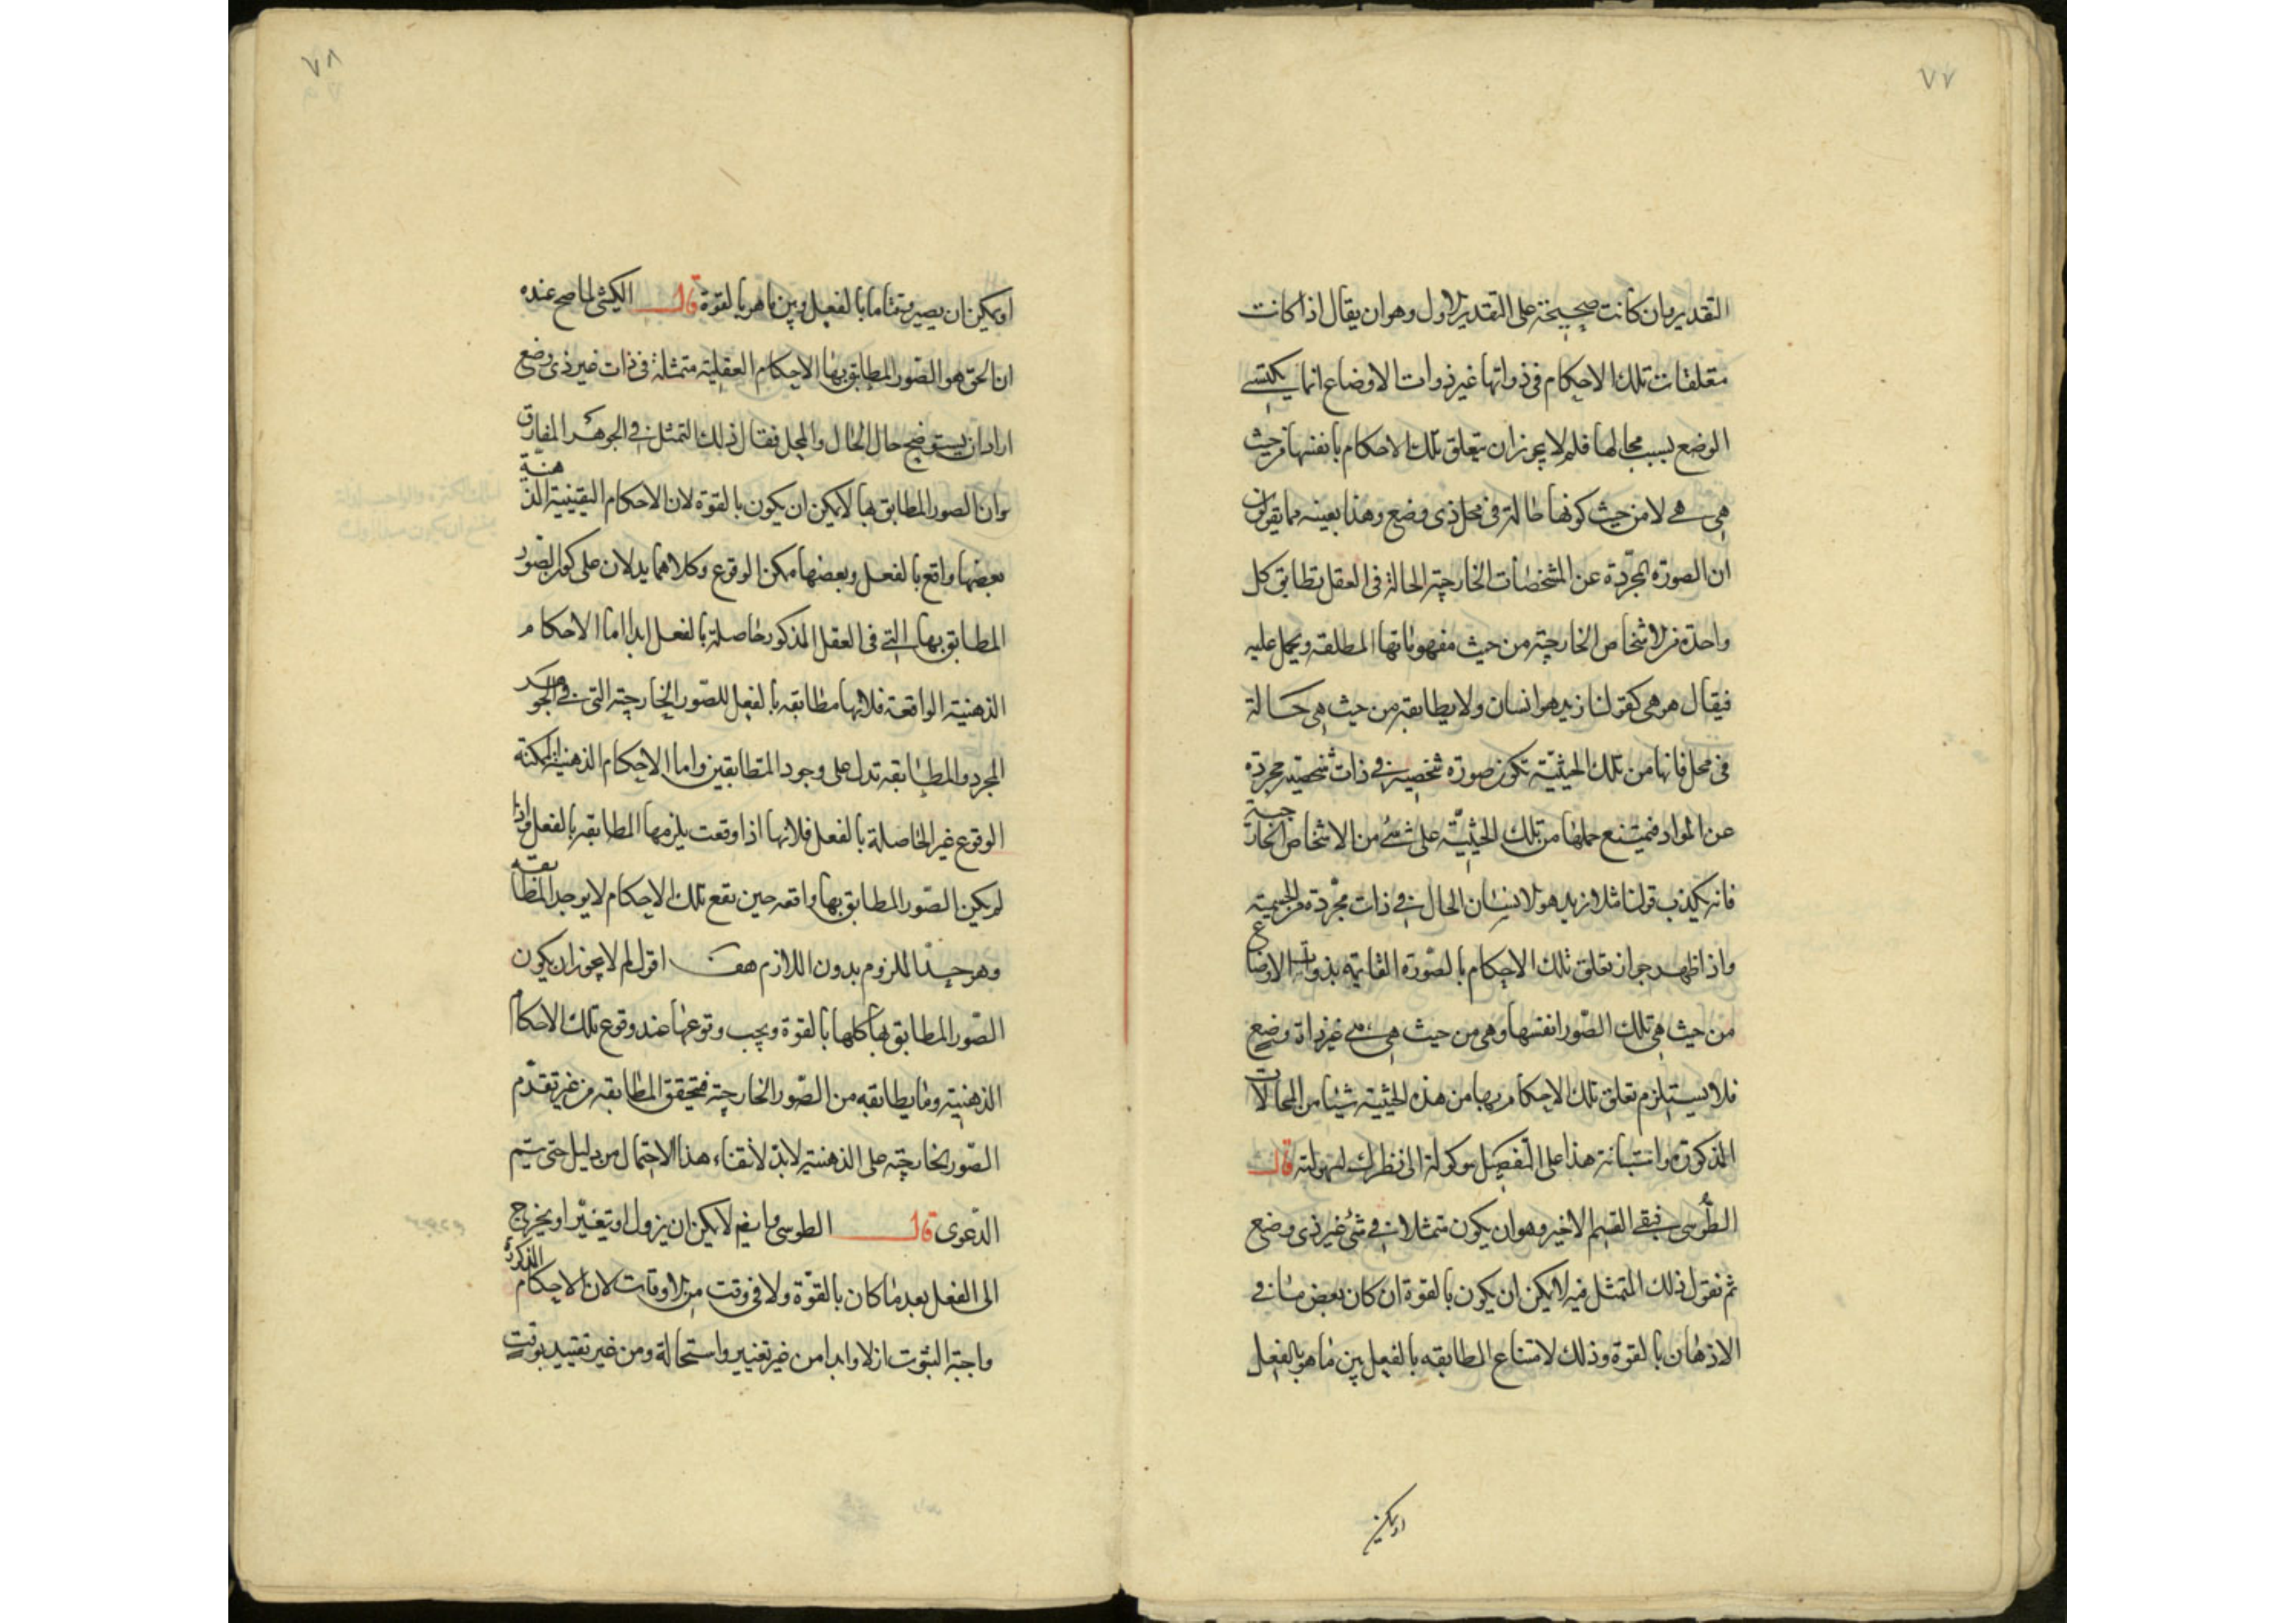 ٧٧
التقدير وان كانت صحيحة على التقدير الاول وهو ان يقال اذا كانت
متعلقات تلك الاحكام فى ذواتها غير ذوات الاوضاع انما يكتسى
الوضع بسبب محالها فلم لا يجوز ان يتعلق تلك الاحكام بانفسها من حيث
هى هى لا من حيث كونها حالة فى محل ذى وضع وهذا بعينه ما يقولون
ان الصورة المجردة عن المشخصات الخارجية الحالة فى العقل تطابق كل
واحدة من الاشخاص الخارجية من حيث مفهوماتها المطلقه ويحمل عليه
فيقال هو هى كقولنا زيد هو انسان ولا يطابقه من حيث هى حالة
فى محل فانها من تلك الحيثية تكون صورة شخصية فى ذات شخصية مجردة
عن المواد فيمتنع حملها من تلك الحيثية على شئ من الاشخاص الخارجية
فانه يكذب قولنا مثلا زيد هو الانسان الحال فى ذات مجردة عن الجسمية
واذا ظهر جواز تعلق تلك الاحكام بالصورة القائمه بذوات الاوضاع
من حيث هى تلك الصور انفسها وهى من حيث هى هى غير ذات وضع
فلا يستلزم تعلق تلك الاحكام بها من هذه الحيثية شيئا من المحالات
المذكورة واستبانة هذا على التفصيل موكولة الى نظرك لسهولته قال
الطوسى فبقى القسم الاخير وهو ان يكون متمثلا فى شئ غير ذى وضع
ثم نقول ذلك المتمثل فيه لا يمكن ان يكون بالقوة ان كان بعض ما فى
الاذهان بالقوة وذلك لامتناع المطابقه بالفعل بين ما هو بالفعل
او يمكن
٧٨
او يمكن ان يصير وقتا ما بالفعل وبين ما هو بالقوة قال الكيشى لما صح عنده
ان الحق هو الصور المطابق بها الاحكام العقلية متمثلة فى ذات غير ذى وضع
اراد ان يستوضح حال الحال والمحل فقال ذلك التمثل فى الجوهر المفارق
وان الصور المطابق بها لا يمكن ان يكون بالقوة لان الاحكام اليقينية الذهنية
بعضها واقع بالفعل وبعضها ممكن الوقوع وكلاهما يدلان على كون الصور
المطابق بها التى فى العقل المذكور حاصلة بالفعل ابدا اما الاحكام
الذهنية الواقعة فلانها مطابقه بالفعل للصور الخارجية التى فى الجوهر
المجرد والمطابقه تدل على وجود المتطابقين واما الاحكام الذهنية الممكنة
الوقوع غير الحاصلة بالفعل فلانها اذا وقعت يلزمها المطابقه بالفعل واذا
لم يكن الصور المطابق بها واقعه حين تقع تلك الاحكام لا يوجد المطابقه
وهو جدا الملزوم بدون اللازم هف اقول لم لا يجوز ان يكون
الصور المطابق بها كلها بالقوة ويجب وقوعها عند وقوع تلك الاحكام
الذهنية وما يطابقه من الصور الخارجية فتحقق المطابقه من غير تقدم
الصور الخارجية على الذهنية لابد لانتفاء هذا الاحتمال من دليل حتى يتم
الدعوى قال الطوسى وايضا لا يمكن ان يزول او يتغير او يخرج
الى الفعل بعد ما كان بالقوة ولا فى وقت من الاوقات لان الاحكام المذكورة
واجبة الثبوت ازلا وابدا من غير تغيير واستحالة ومن غير تقييد بوقت